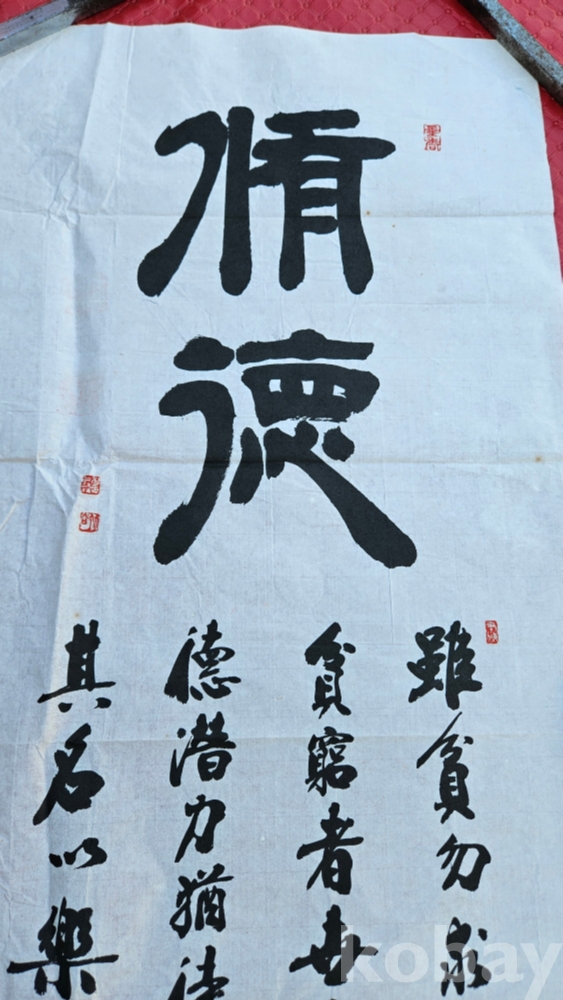 脩德
雖貧勿求
貧窮者
德潜力猶
其名以樂
kobay